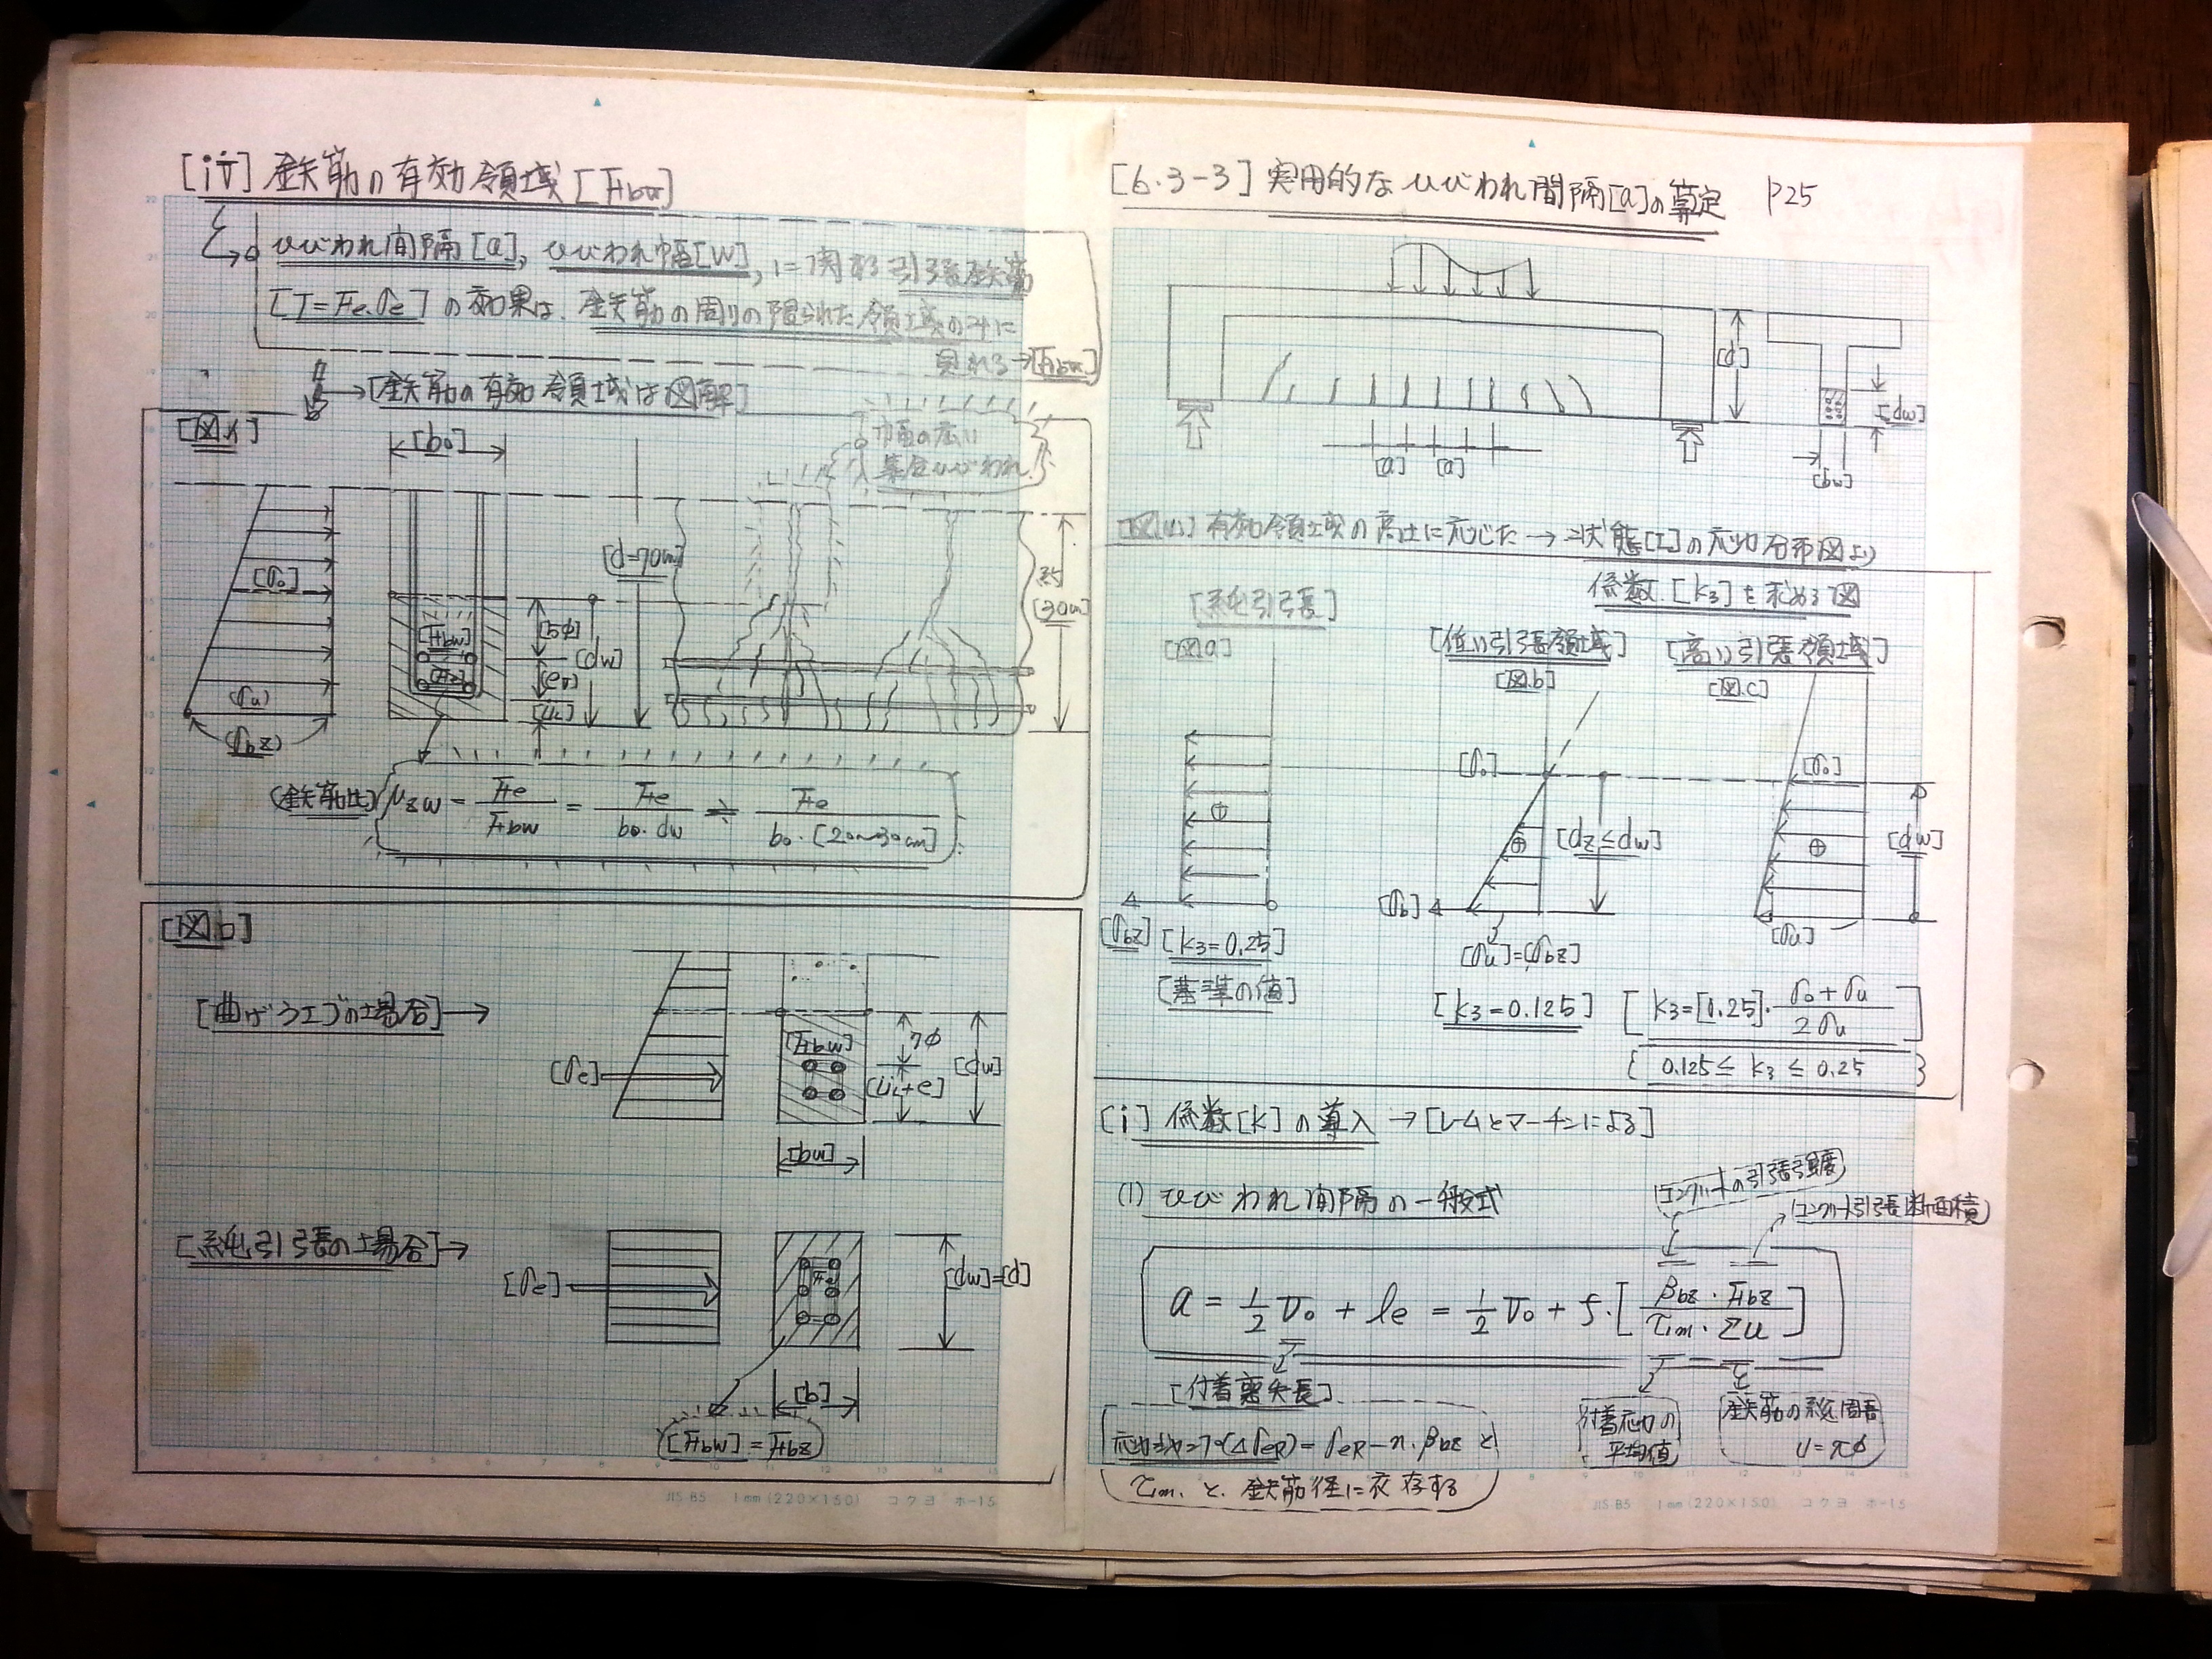 [iv] 鉄筋の有効領域[Fbw]
ひびわれ間隔[a], ひびわれ幅[W], に関する引張鉄筋
[T=Fe.σe]の効果は、鉄筋の周りの限られた領域のみに
見れる→[Fbw]
→[鉄筋の有効領域は図解]
[図a]
[bo]
幅の広い
集合ひびわれ
[σo]
[d=70cm]
約
[30cm]
[Fbw]
[Fe]
[5φ]
[dw]
[eσ]
[ü]
(σu)
(σbz)
(鉄筋比) μzw = Fe/Fbw = Fe/bo・dw ≒ Fe/bo・[20~30cm]
[図b]
[曲げウエブの場合]→
[σe]
[Fbw]
7φ
[ü+e]
[dw]
[bw]
[純引張の場合]→
[σe]
[Fe]
[dw]=[d]
[b]
[Fbw]=Fbz
JIS-B5 1mm(220×150) コクヨ ホ-15
[6.3-3] 実用的なひびわれ間隔[a]の算定 P25
[d]
[dw]
[a] [a]
[bw]
有効領域の高さに応じた→状態[I]の応力分布図より
係数[k3]を求める図
[純引張]
[図a]
[低い引張領域]
[図.b]
[高い引張領域]
[図.c]
[σo]
[σo]
[dz≤dw]
[dw]
[σbz]
[σb]
[σu]=[σbz]
[σu]
[k3=0.25]
[基準の値]
[k3=0.125]
[k3=[0.25]・(σo+σu)/2σu]
{0.125≤ k3 ≤ 0.25}
[i] 係数[k]の導入 →[レームとマーチンによる]
(1) ひびわれ間隔の一般式
(コンクリートの引張強度)
(コンクリート引張断面積)
a = 1/2 vo + le = 1/2 vo + ζ・[βbz・Fbz / τ1m・ΣU]
[付着喪失長]
応力ジャンプ(ΔσeR)=σeR-n.βbz と
τ1m. と、鉄筋径に依存する
付着応力の
平均値
鉄筋の総周長
U=πφ
JIS-B5 1mm(220×150) コクヨ ホ-15